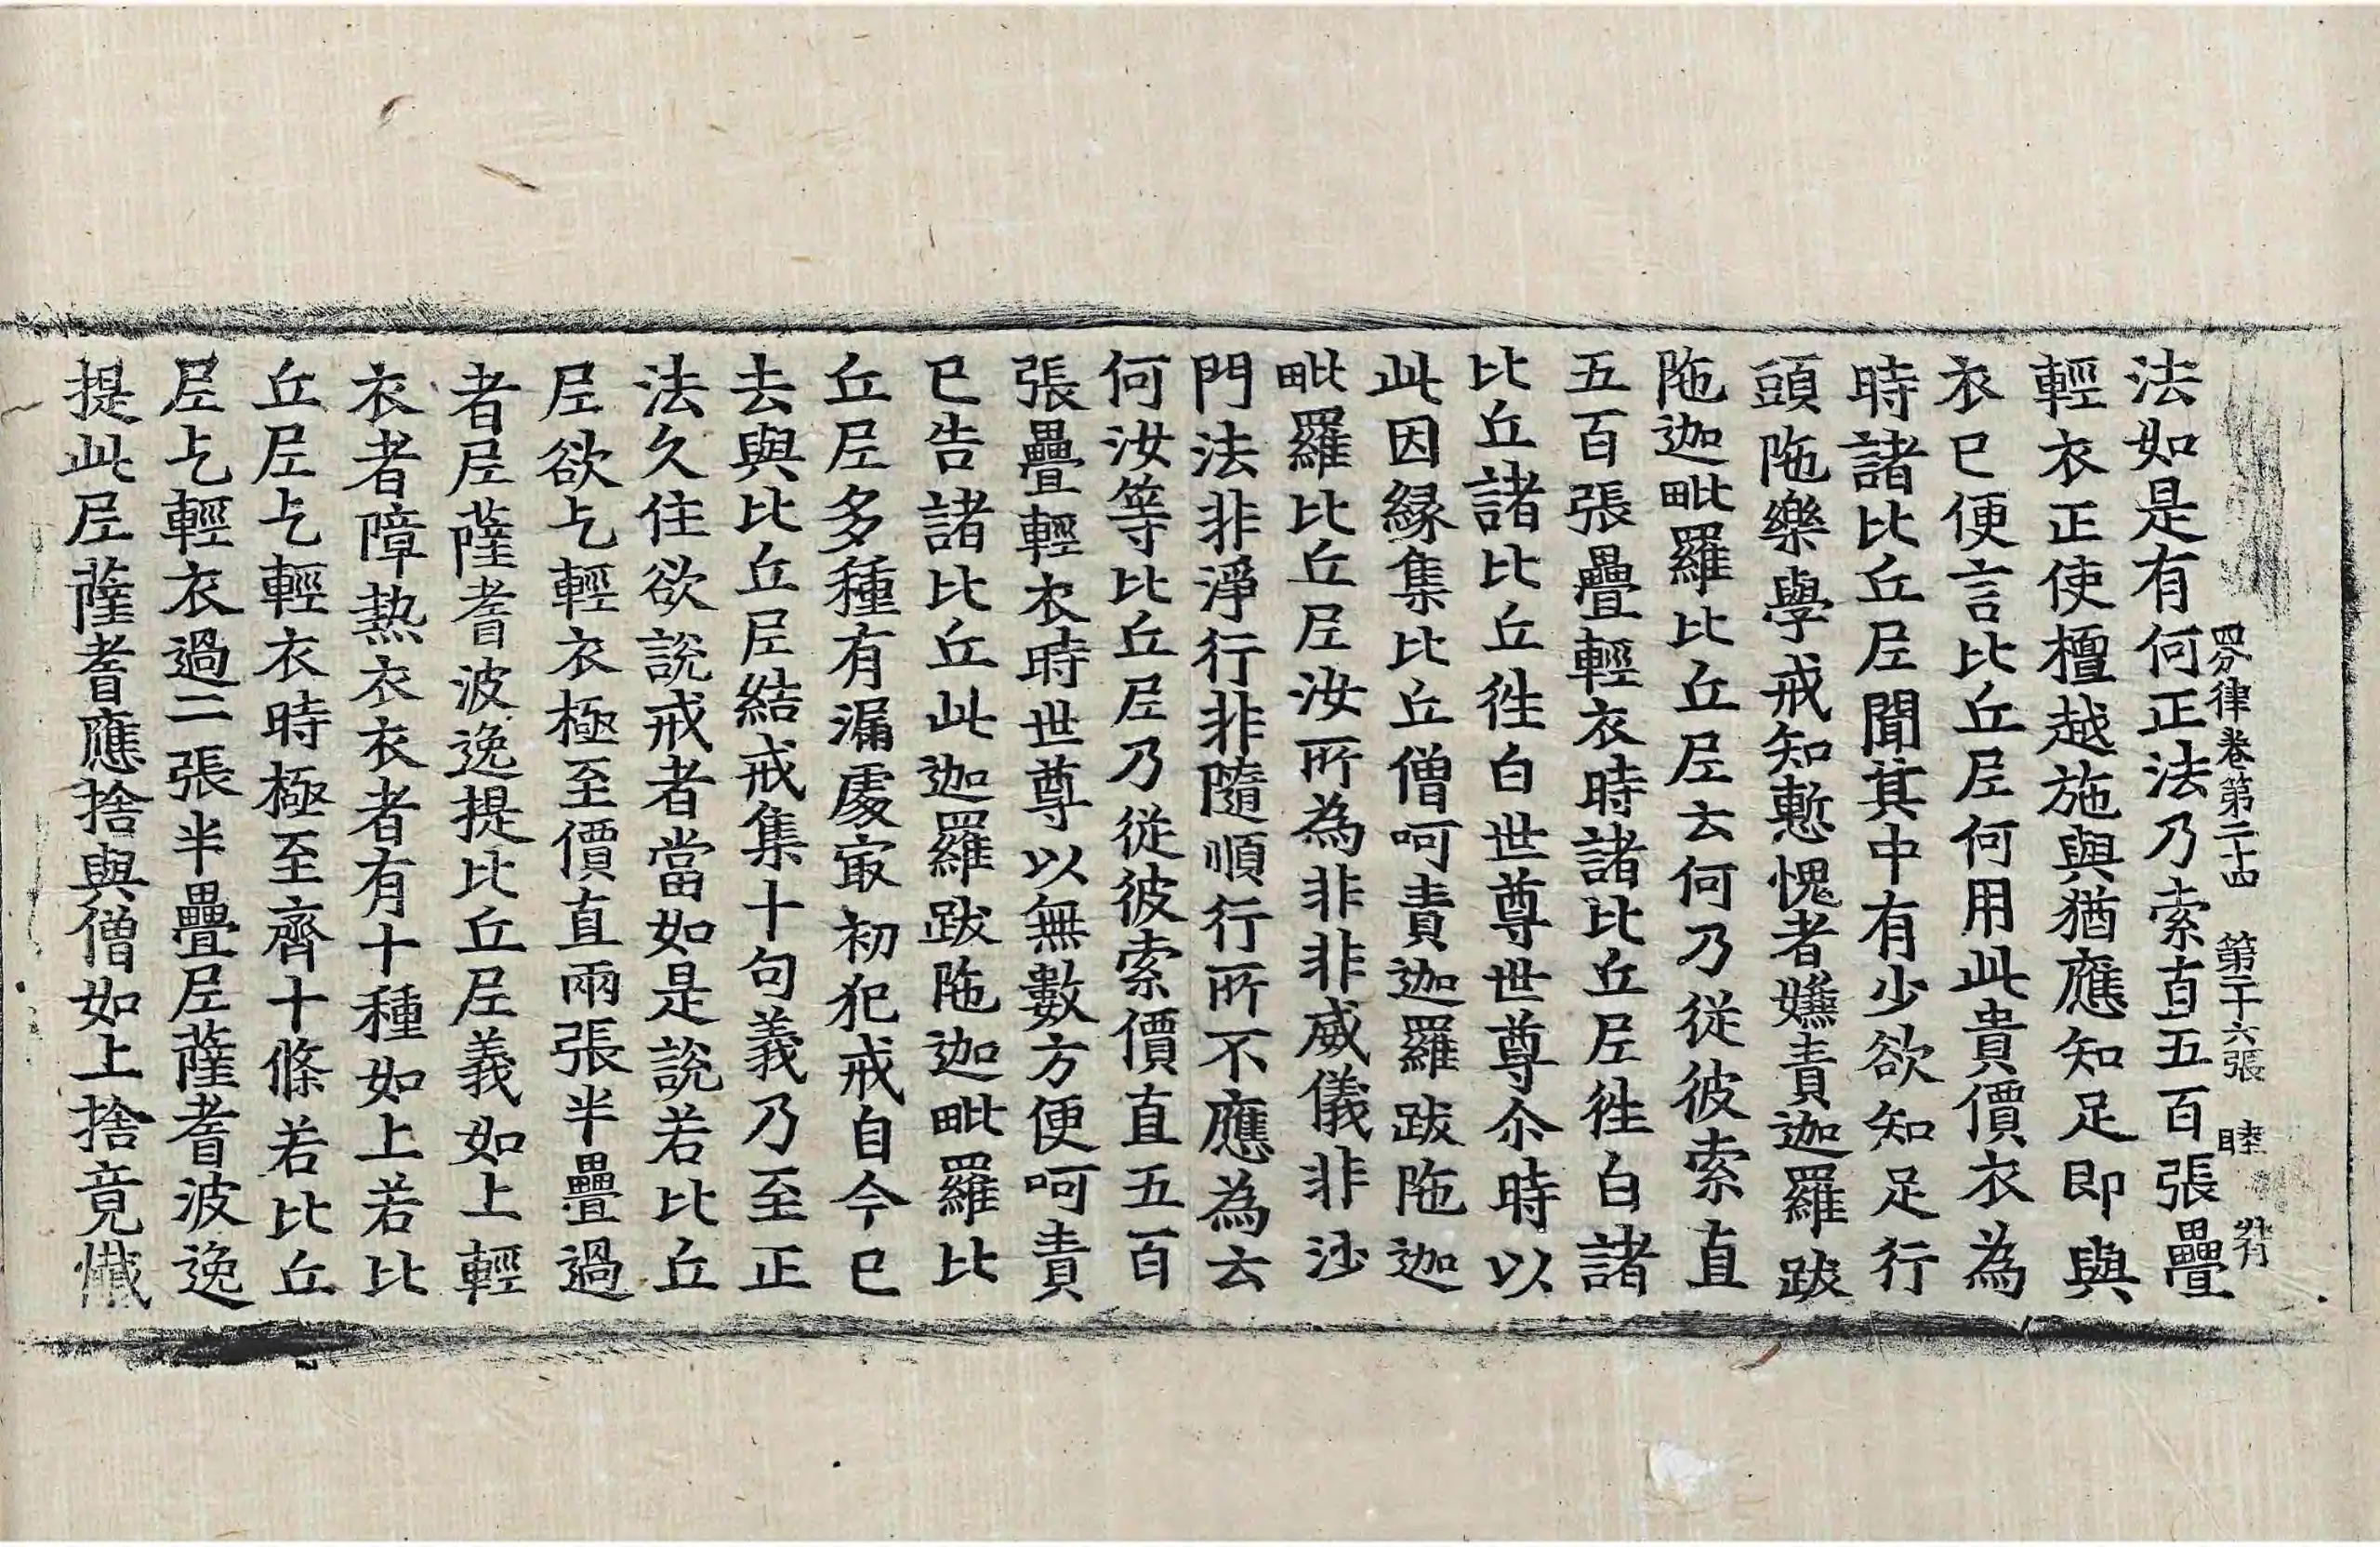 四分律卷第二十四　第二十六張　睦
法如是有何正法乃索直五百張疊
輕衣正使檀越施與猶應知足即與
衣已便言比丘尼何用此貴價衣為
時諸比丘尼聞其中有少欲知足行
頭陁樂學戒知慙愧者嫌責迦羅跋
陁迦毗羅比丘尼去何乃從彼索直
五百張疊輕衣時諸比丘尼徃白諸
比丘諸比丘徃白世尊世尊尒時以
此因緣集比丘僧呵責迦羅跋陁迦
毗羅比丘尼汝所為非非威儀非沙
門法非淨行非隨順行所不應為去
何汝等比丘尼乃從彼索價直五百
張疊輕衣時世尊以無數方便呵責
已告諸比丘此迦羅跋陁迦毗羅比
丘尼多種有漏處㝡初犯戒自今已
去與比丘尼結戒集十句義乃至正
法久住欲說戒者當如是說若比丘
尼欲乞輕衣極至價直兩張半疊過
者尼薩耆波逸提比丘尼義如上輕
衣者障熱衣衣者有十種如上若比
丘尼乞輕衣時極至齊十條若比丘
尼乞輕衣過二張半疊尼薩耆波逸
提此尼薩耆應捨與僧如上捨竟懺